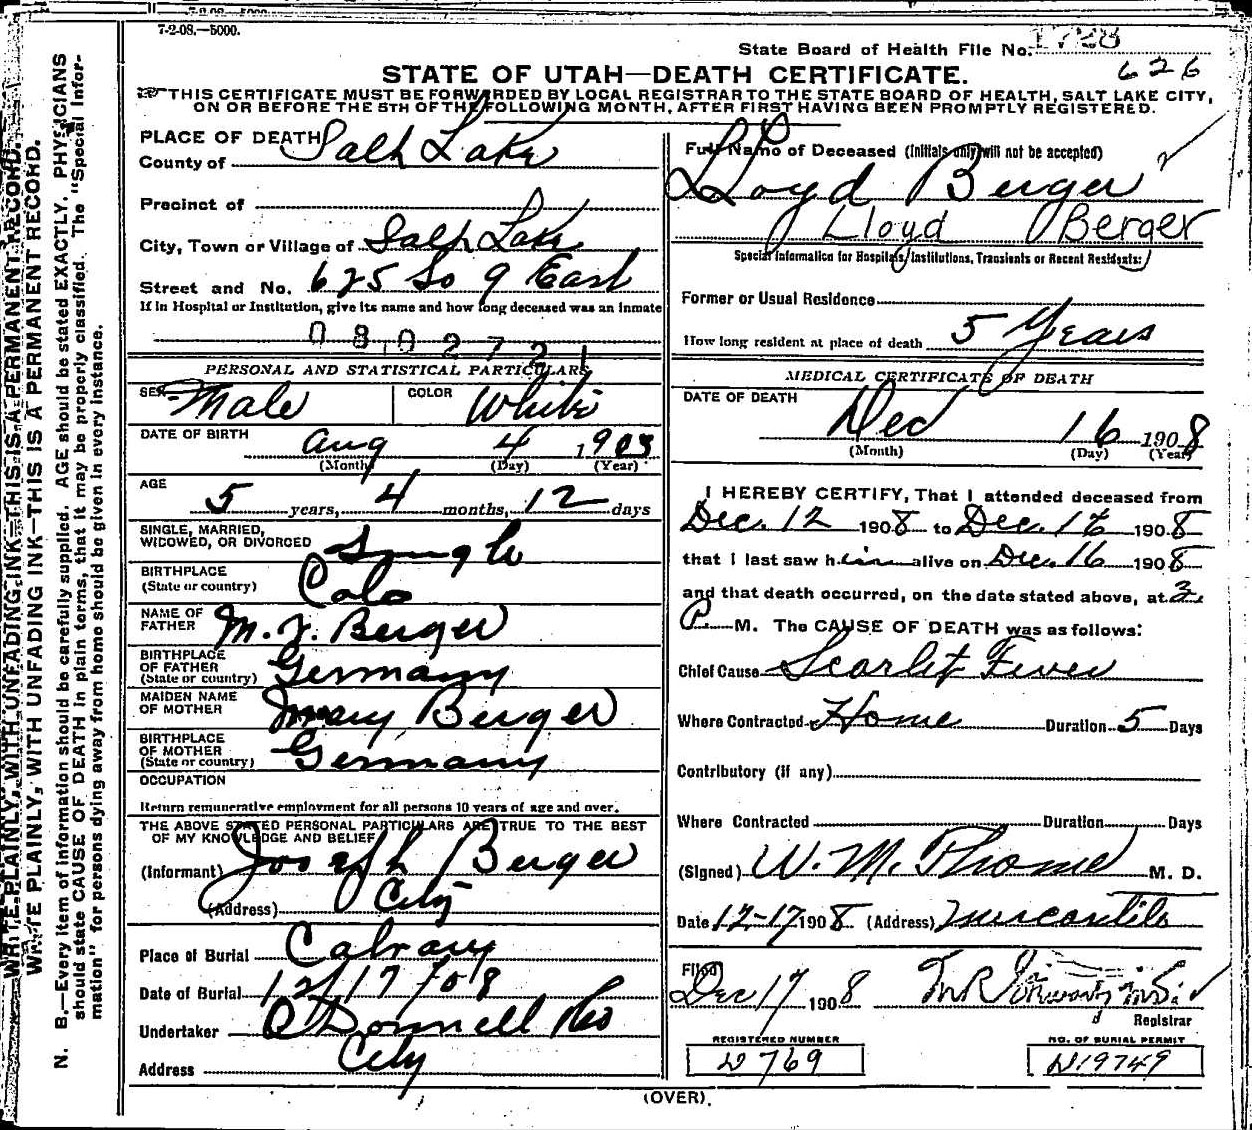 7-2-08.—5000.
State Board of Health File No. 1728
626
STATE OF UTAH—DEATH CERTIFICATE.
THIS CERTIFICATE MUST BE FORWARDED BY LOCAL REGISTRAR TO THE STATE BOARD OF HEALTH, SALT LAKE CITY,
ON OR BEFORE THE 5TH OF THE FOLLOWING MONTH, AFTER FIRST HAVING BEEN PROMPTLY REGISTERED.
WRITE PLAINLY, WITH UNFADING INK—THIS IS A PERMANENT RECORD.
WRITE PLAINLY, WITH UNFADING INK—THIS IS A PERMANENT RECORD.
N. B.—Every item of information should be carefully supplied. AGE should be stated EXACTLY. PHYSICIANS
should state CAUSE OF DEATH in plain terms, that it may be properly classified. The "Special Infor-
mation" for persons dying away from home should be given in every instance.
PLACE OF DEATH
County of Salt Lake
Precinct of
City, Town or Village of Salt Lake
Street and No. 625 So 9 East
If in Hospital or Institution, give its name and how long deceased was an inmate
0802721
PERSONAL AND STATISTICAL PARTICULARS
SEX Male COLOR White
DATE OF BIRTH Aug 4 1903
(Month) (Day) (Year)
AGE
5 years, 4 months, 12 days
SINGLE, MARRIED,
WIDOWED, OR DIVORCED Single
BIRTHPLACE
(State or country) Colo
NAME OF
FATHER M. J. Berger
BIRTHPLACE
OF FATHER
(State or country) Germany
MAIDEN NAME
OF MOTHER Mary Berger
BIRTHPLACE
OF MOTHER
(State or country) Germany
OCCUPATION
Return remunerative employment for all persons 10 years of age and over.
THE ABOVE STATED PERSONAL PARTICULARS ARE TRUE TO THE BEST
OF MY KNOWLEDGE AND BELIEF
(Informant) Joseph Berger
(Address) City
Place of Burial Calvary
Date of Burial 12/17/08
Undertaker O'Donnell & Co
Address City
Full Name of Deceased (Initials only will not be accepted)
Lloyd Berger
Lloyd Berger
Special Information for Hospitals, Institutions, Transients or Recent Residents:
Former or Usual Residence
How long resident at place of death 5 Years
MEDICAL CERTIFICATE OF DEATH
DATE OF DEATH
Dec 16 1908
(Month) (Day) (Year)
I HEREBY CERTIFY, That I attended deceased from
Dec. 12 1908 to Dec. 16 1908
that I last saw him alive on Dec. 16 1908
and that death occurred, on the date stated above, at 3
P. M. The CAUSE OF DEATH was as follows:
Chief Cause Scarlet Fever
Where Contracted Home Duration 5 Days
Contributory (if any)
Where Contracted Duration Days
(Signed) W. M. M. D.
Date 12-17 1908 (Address) Mercantile
Filed
Dec 17 1908
Registrar
REGISTERED NUMBER
D 769
NO. OF BURIAL PERMIT
D19749
(OVER).